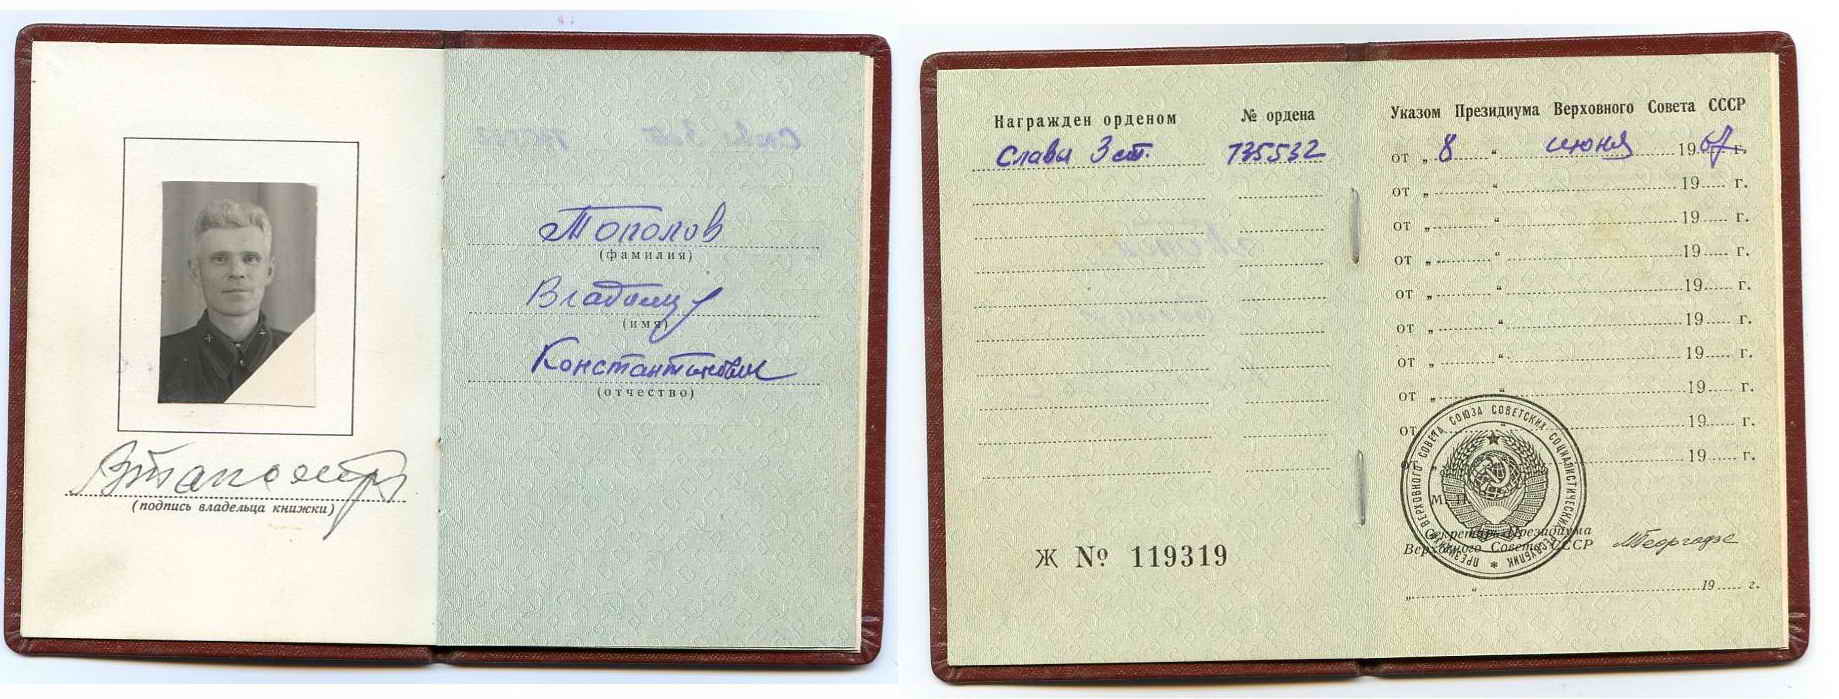 Тополов
(фамилия)
Владимир
(имя)
Константинович
(отчество)
(подпись владельца книжки)
Награжден орденом
№ ордена
Славы 3 ст.
735532
Ж № 119319
Указом Президиума Верховного Совета СССР
от „ 8 “ июня 1967 г.
от „ “ 19 г.
от „ “ 19 г.
от „ “ 19 г.
от „ “ 19 г.
от „ “ 19 г.
от „ “ 19 г.
от „ “ 19 г.
от „ “ 19 г.
от „ “ 19 г.
ПРЕЗИДИУМ ВЕРХОВНОГО СОВЕТА СОЮЗА СОВЕТСКИХ СОЦИАЛИСТИЧЕСКИХ РЕСПУБЛИК
М. П.
Секретарь Президиума
Верховного Совета СССР
МГеоргадзе
„ “ 19 г.